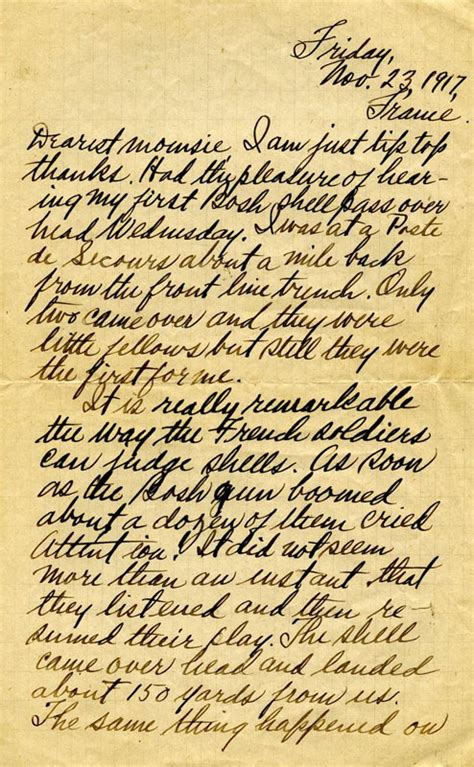 Friday,
Nov. 23, 1917,
France.
Dearest momsie, I am just tip top
thanks. Had the pleasure of hear-
ing my first Bosh shell pass over
head Wednesday. I was at a Poste
de Secours about a mile back
from the front line trench. Only
two came over and they were
little fellows but still they were
the first for me.
It is really remarkable
the way the French soldiers
can judge shells. As soon
as the Bosh gun boomed
about a dozen of them cried
Attint ion! It did not seem
more than an instant that
they listened and then re-
sumed their play. The shell
came over head and landed
about 150 yards from us.
The same thing happened on